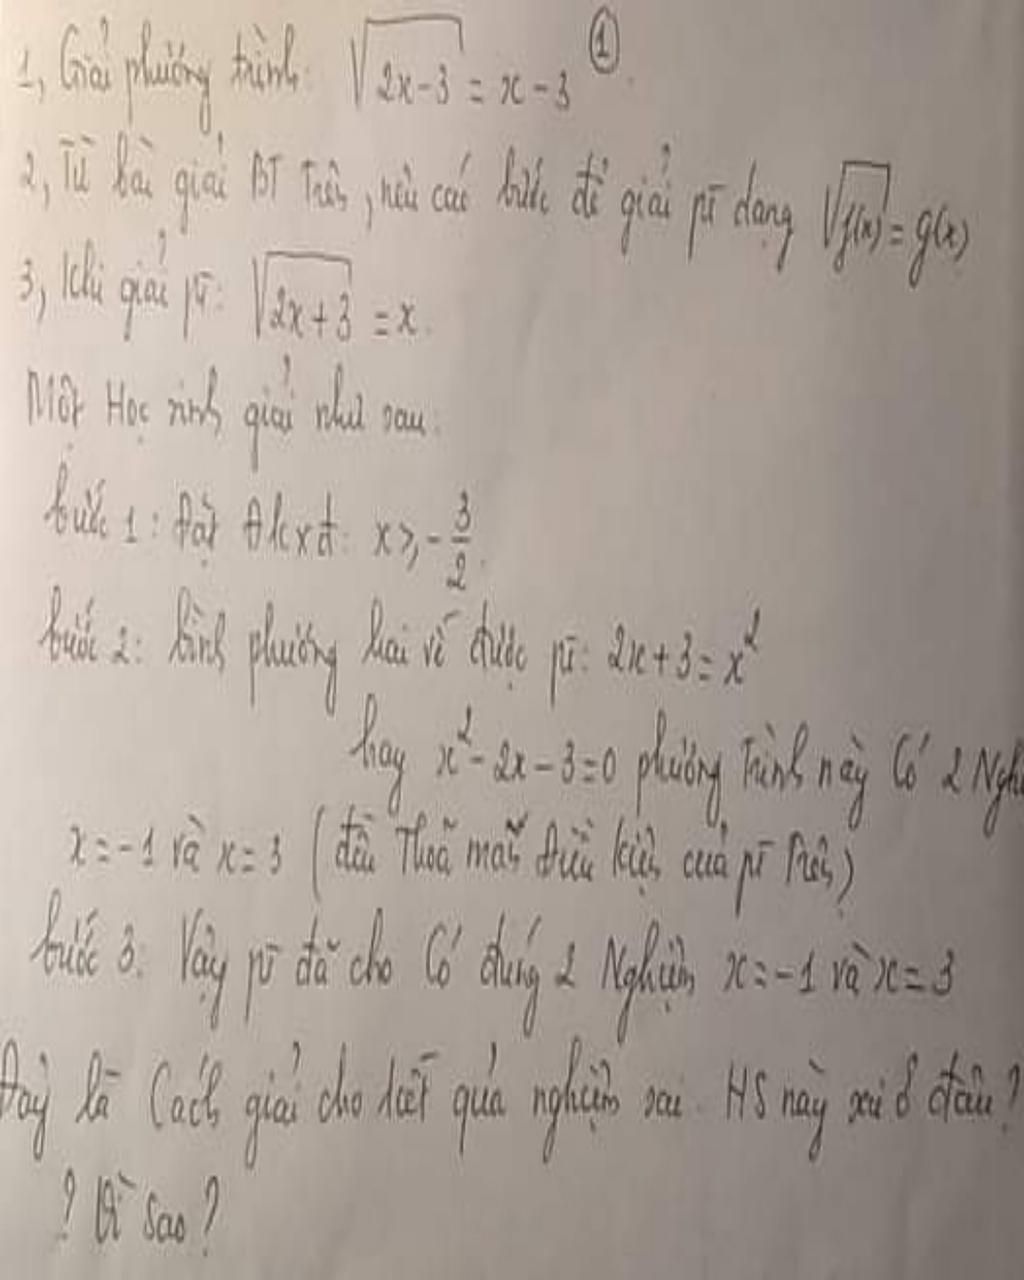 1, Giải phương trình: √2x-3 = x-3 ①.
2, Từ bài giải BT Trên, nêu các bước để giải pt dạng √f(x) = g(x)
3, Khi giải pt: √2x+3 = x.
Một Học sinh giải như sau:
bước 1: Đặt Đkxđ: x ≥ -3/2.
bước 2: bình phương hai vế được pt: 2x+3 = x²
hay x²-2x-3=0 phương Trình này Có 2 Ngh
x=-1 và x=3 (đều Thoã mãn Điều kiện của pt Trên)
bước 3: Vậy pt đã cho Có đúng 2 Nghiệm x=-1 và x=3
Đây là Cách giải cho kết quả nghiệm sai. HS này sai ở đâu?
? Vì sao?